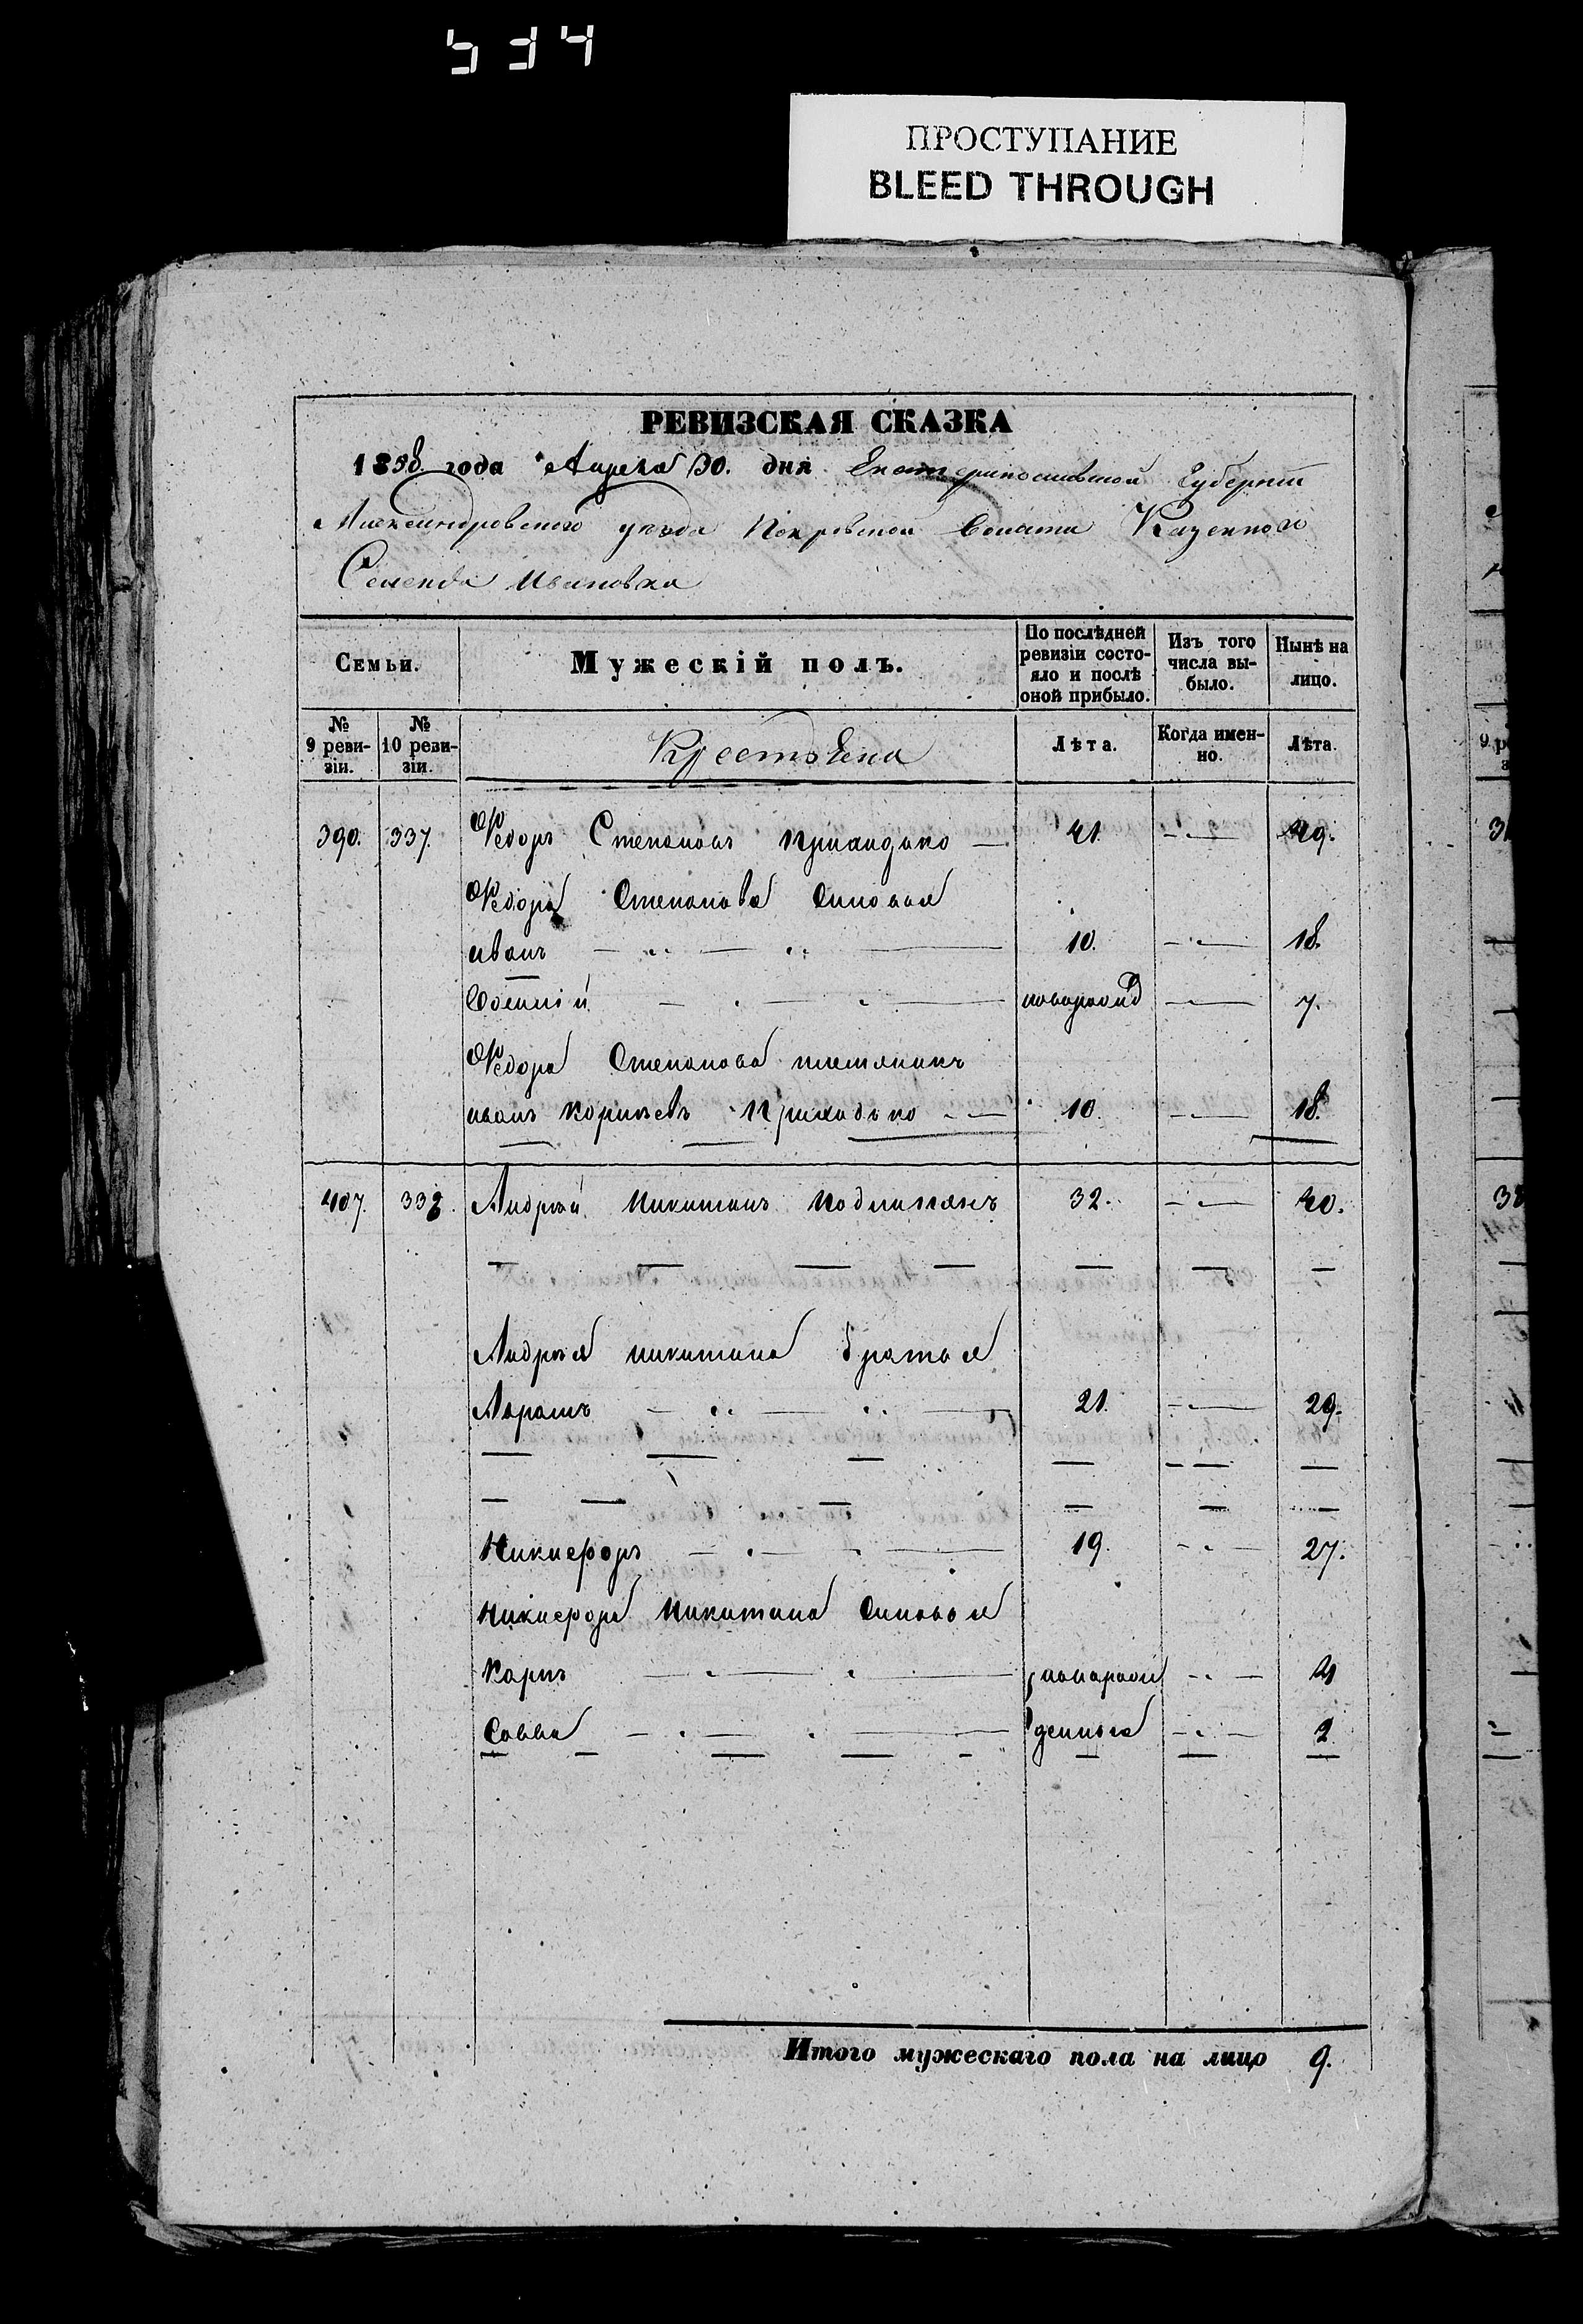 534
ПРОСТУПАНИЕ
BLEED THROUGH
РЕВИЗСКАЯ СКАЗКА
1858 года Апреля 30. дня Екатеринославской Губернии
Александровского уезда Покровской Волости Казенного
Селенья Ивановка
Семьи.
Мужескій полъ.
По послѣдней ревизіи состояло и послѣ оной прибыло.
Изъ того числа выбыло.
Нынѣ на лицо.
№ 9 ревизіи.
№ 10 ревизіи.
Крестьяне
Лѣта.
Когда именно.
Лѣта.
390. 337. Федоръ Степановъ Приходько — 41. 49.
Федора Степанова Сыновья
иванъ 10. 18.
Василій новорожд 7.
Федора Степанова племяникъ
иванъ Корнѣевъ Приходько 10 18.
407. 338. Андрей Никитинъ 32. 40.
Андрѣя никитина братья
21. 29.
Никифоръ 19. 27.
Никифора Никитина Сыновья
Карпъ новорож 4
Савва денныя 2
Итого мужескаго пола на лицо 9.